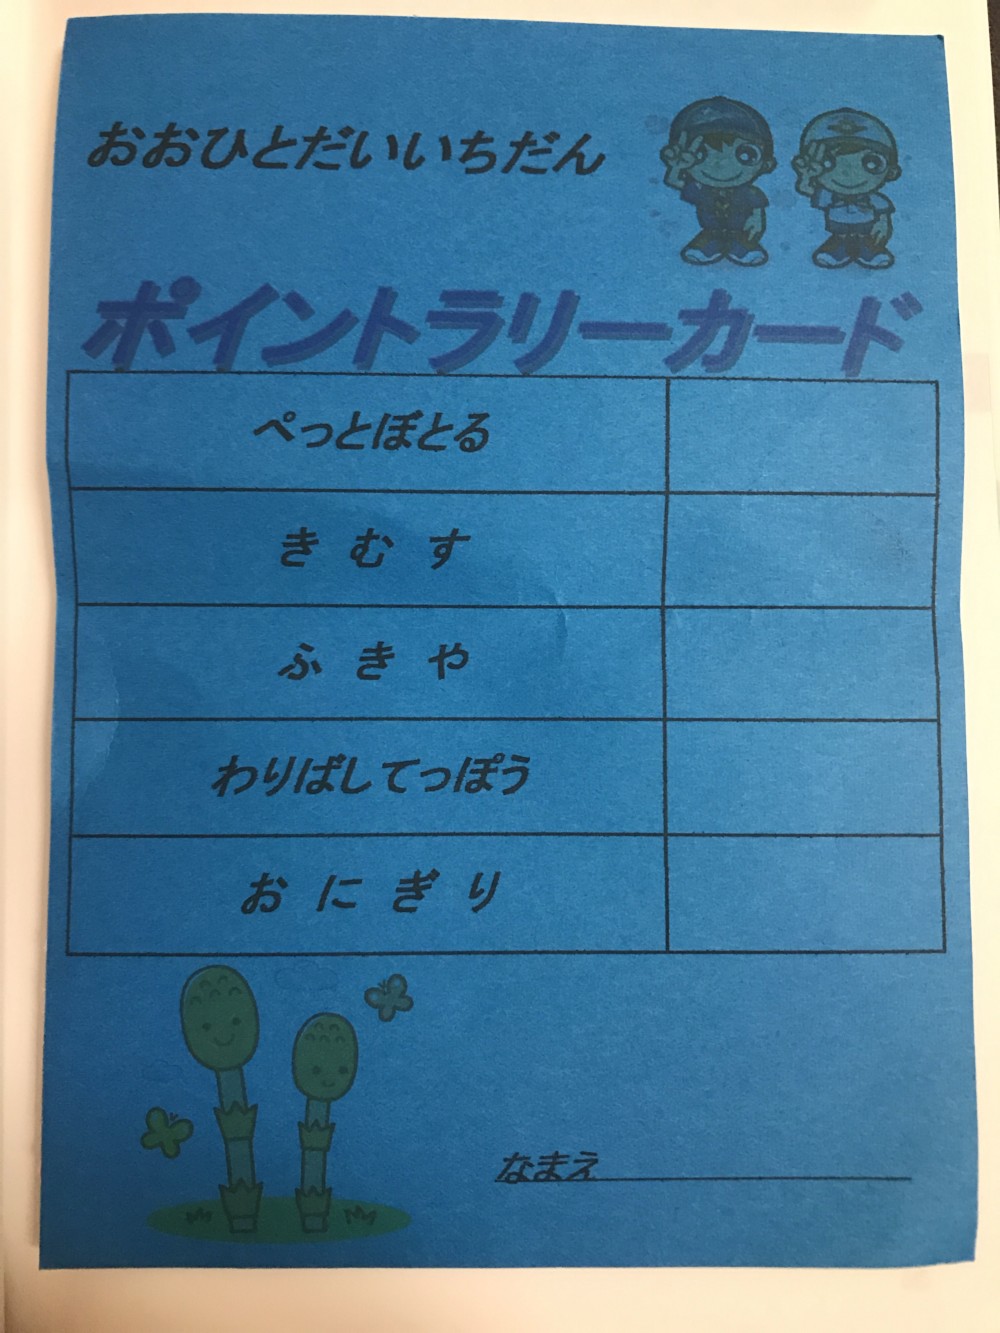 おおひとだいいちだん
ポイントラリーカード
ぺっとぼとる
きむす
ふきや
わりばしてっぽう
おにぎり
なまえ